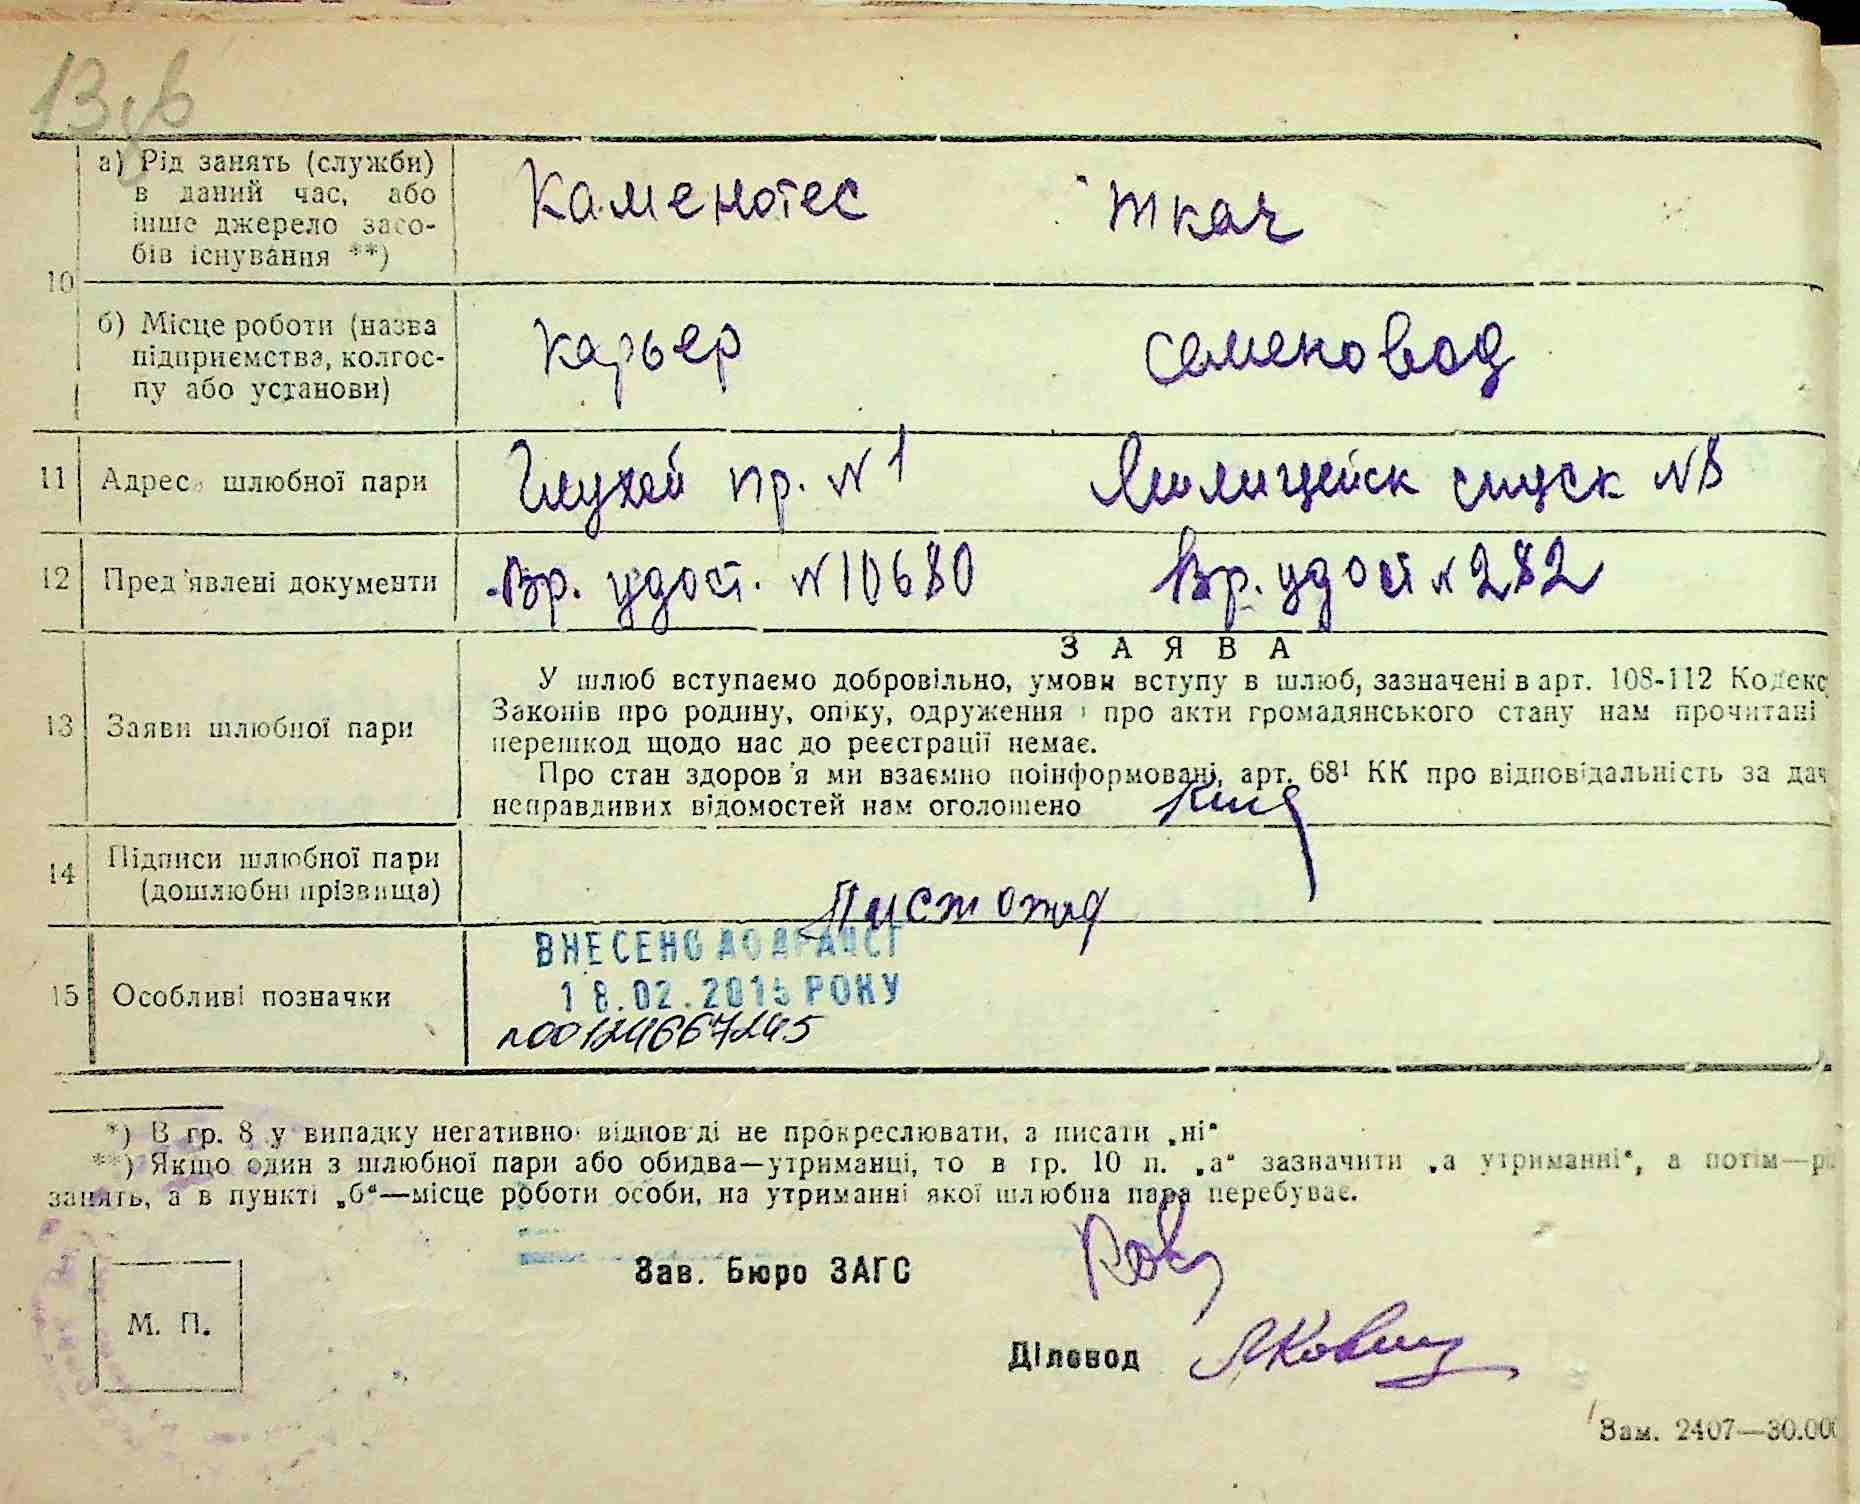 13зв
а) Рід занять (служби)
в даний час, або
інше джерело засо-
бів існування **)
Каменотес
ткач
10
б) Місце роботи (назва
підприємства, колгос-
пу або установи)
карьер
семеновод
11 Адрес шлюбної пари
Глухой пр. N 1
Милицейск спуск N 8
12 Пред'явлені документи
Вр. удост. N 10680
Вр. удост N 282
ЗАЯВА
13 Заяви шлюбної пари
У шлюб вступаємо добровільно, умови вступу в шлюб, зазначені в арт. 108-112 Кодекс
Законів про родину, опіку, одруження і про акти громадянського стану нам прочитані
перешкод щодо нас до реєстрації немає.
Про стан здоров'я ми взаємно поінформовані, арт. 68¹ КК про відповідальність за дач
неправдивих відомостей нам оголошено
14 Підписи шлюбної пари
(дошлюбні прізвища)
15 Особливі позначки
ВНЕСЕНО ДО ДРАЦСГ
18.02.2015 РОКУ
n00124667245
*) В гр. 8 у випадку негативної відповіді не прокреслювати, а писати „ні“
**) Якщо один з шлюбної пари або обидва—утриманці, то в гр. 10 п. „а“ зазначити „а утриманні“, а потім—рі
занять, а в пункті „б“—місце роботи особи, на утриманні якої шлюбна пара перебуває.
Зав. Бюро ЗАГС
М. П.
Діловод
Зам. 2407—30.000